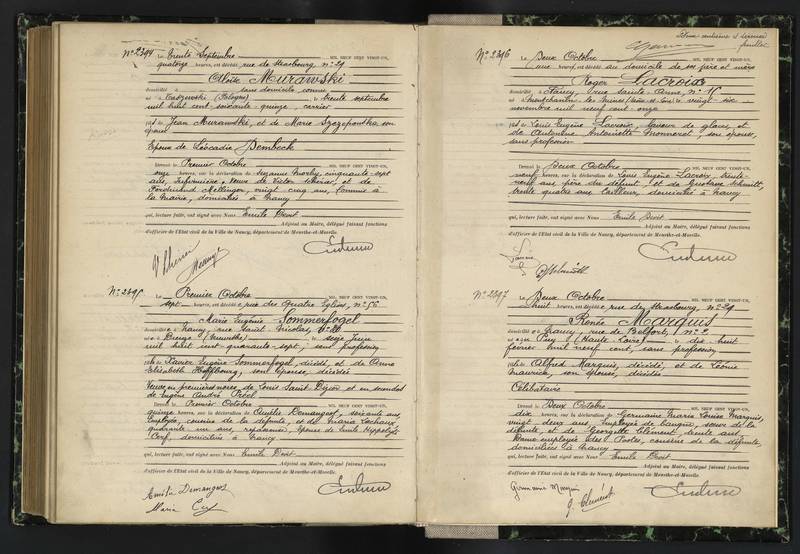 N° 2394 Le trente Septembre MIL NEUF CENT VINGT-UN,
quatorze heures, est décédé rue de Strasbourg n° 29
Aloïse Murawski
domicilié à sans domicile connu
né à (Pologne) le trente septembre
mil huit cent soixante-quinze, carrier
fils de Jean Murawski, et de Marie Szczepantka, son
épouse
Epoux de Léocadie Dembeck
Dressé le Premier Octobre MIL NEUF CENT VINGT-UN,
onze heures, sur la déclaration de Suzanne cinquante-sept
ans, infirmière, veuve de Victor et de
Ferdinand vingt cinq ans, Commis à
la Mairie, domiciliés à Nancy
qui, lecture faite, ont signé avec Nous Emile Droit
Adjoint au Maire, délégué faisant fonctions
d'officier de l'État civil de la Ville de Nancy, département de Meurthe-et-Moselle.
N° 2395 Le Premier Octobre MIL NEUF CENT VINGT-UN,
sept heures, est décédée rue des Quatre Eglises, n° 56
Marie Eugénie Sommerfogel
domiciliée à Nancy, rue Saint Nicolas,
née à Dieuze (Meurthe) le seize Juin
mil huit cent quarante-sept, sans profession
fille de Xavier Eugène Sommerfogel, décédé, et de Anne
Elisabeth Hoffbourg, son épouse, décédée
Veuve en premières noces de Louis Saint-Dizier et en secondes
de Eugène André Préel
Dressé le Premier Octobre MIL NEUF CENT VINGT-UN,
quinze heures, sur la déclaration de Amélie Demangeot, soixante ans,
Employée, cousine de la défunte, et de Maria Lachaux,
quarante un ans, épouse de Emile Hippolyte
Cerf, domiciliées à Nancy
qui, lecture faite, ont signé avec Nous Emile Droit
Adjoint au Maire, délégué faisant fonctions
d'officier de l'État civil de la Ville de Nancy, département de Meurthe-et-Moselle.
Amélie Demangeot
Maria Cerf
Deux centième et dernier
feuillet
N° 2396 Le Deux Octobre MIL NEUF CENT VINGT-UN,
une heure, est décédé au domicile de ses père et mère
Roger Lacroix
domicilié à Nancy, rue Sainte-Anne, n° 15
né à Montchanin les Mines (Saône-et-Loire) le vingt-six
novembre mil neuf cent onze
fils de Louis Eugène Lacroix, laveur de glaces, et
de Antonine Antoinette Monneret, son épouse,
sans profession
Dressé le Deux Octobre MIL NEUF CENT VINGT-UN,
neuf heures, sur la déclaration de Louis Eugène Lacroix, trente-
neuf ans, père du défunt, et de Gustave Schmitt,
trente quatre ans, tailleur, domiciliés à Nancy
qui, lecture faite, ont signé avec Nous Emile Droit
Adjoint au Maire, délégué faisant fonctions
d'officier de l'État civil de la Ville de Nancy, département de Meurthe-et-Moselle.
N° 2397 Le Deux Octobre MIL NEUF CENT VINGT-UN,
huit heures, est décédée rue de Strasbourg, n° 29
Renée Marquis
domiciliée à Nancy, rue de Belfort, n° 2
née à Le Puy (Haute Loire) le dix huit
février mil neuf cent, sans profession
fille de Alfred Marquis, décédé, et de Léonie
Mauvrick, son épouse, décédée
Célibataire
Dressé le Deux Octobre MIL NEUF CENT VINGT-UN,
dix heures, sur la déclaration de Germaine Maria Louise Marquis,
vingt deux ans, employée de banque, soeur de la
défunte, et de Georgette Clément, trente ans,
Dame employée des Postes, cousine de la défunte,
domiciliées à Nancy
qui, lecture faite, ont signé avec Nous Emile Droit
Adjoint au Maire, délégué faisant fonctions
d'officier de l'État civil de la Ville de Nancy, département de Meurthe-et-Moselle.
Germaine Marquis
G. Clément